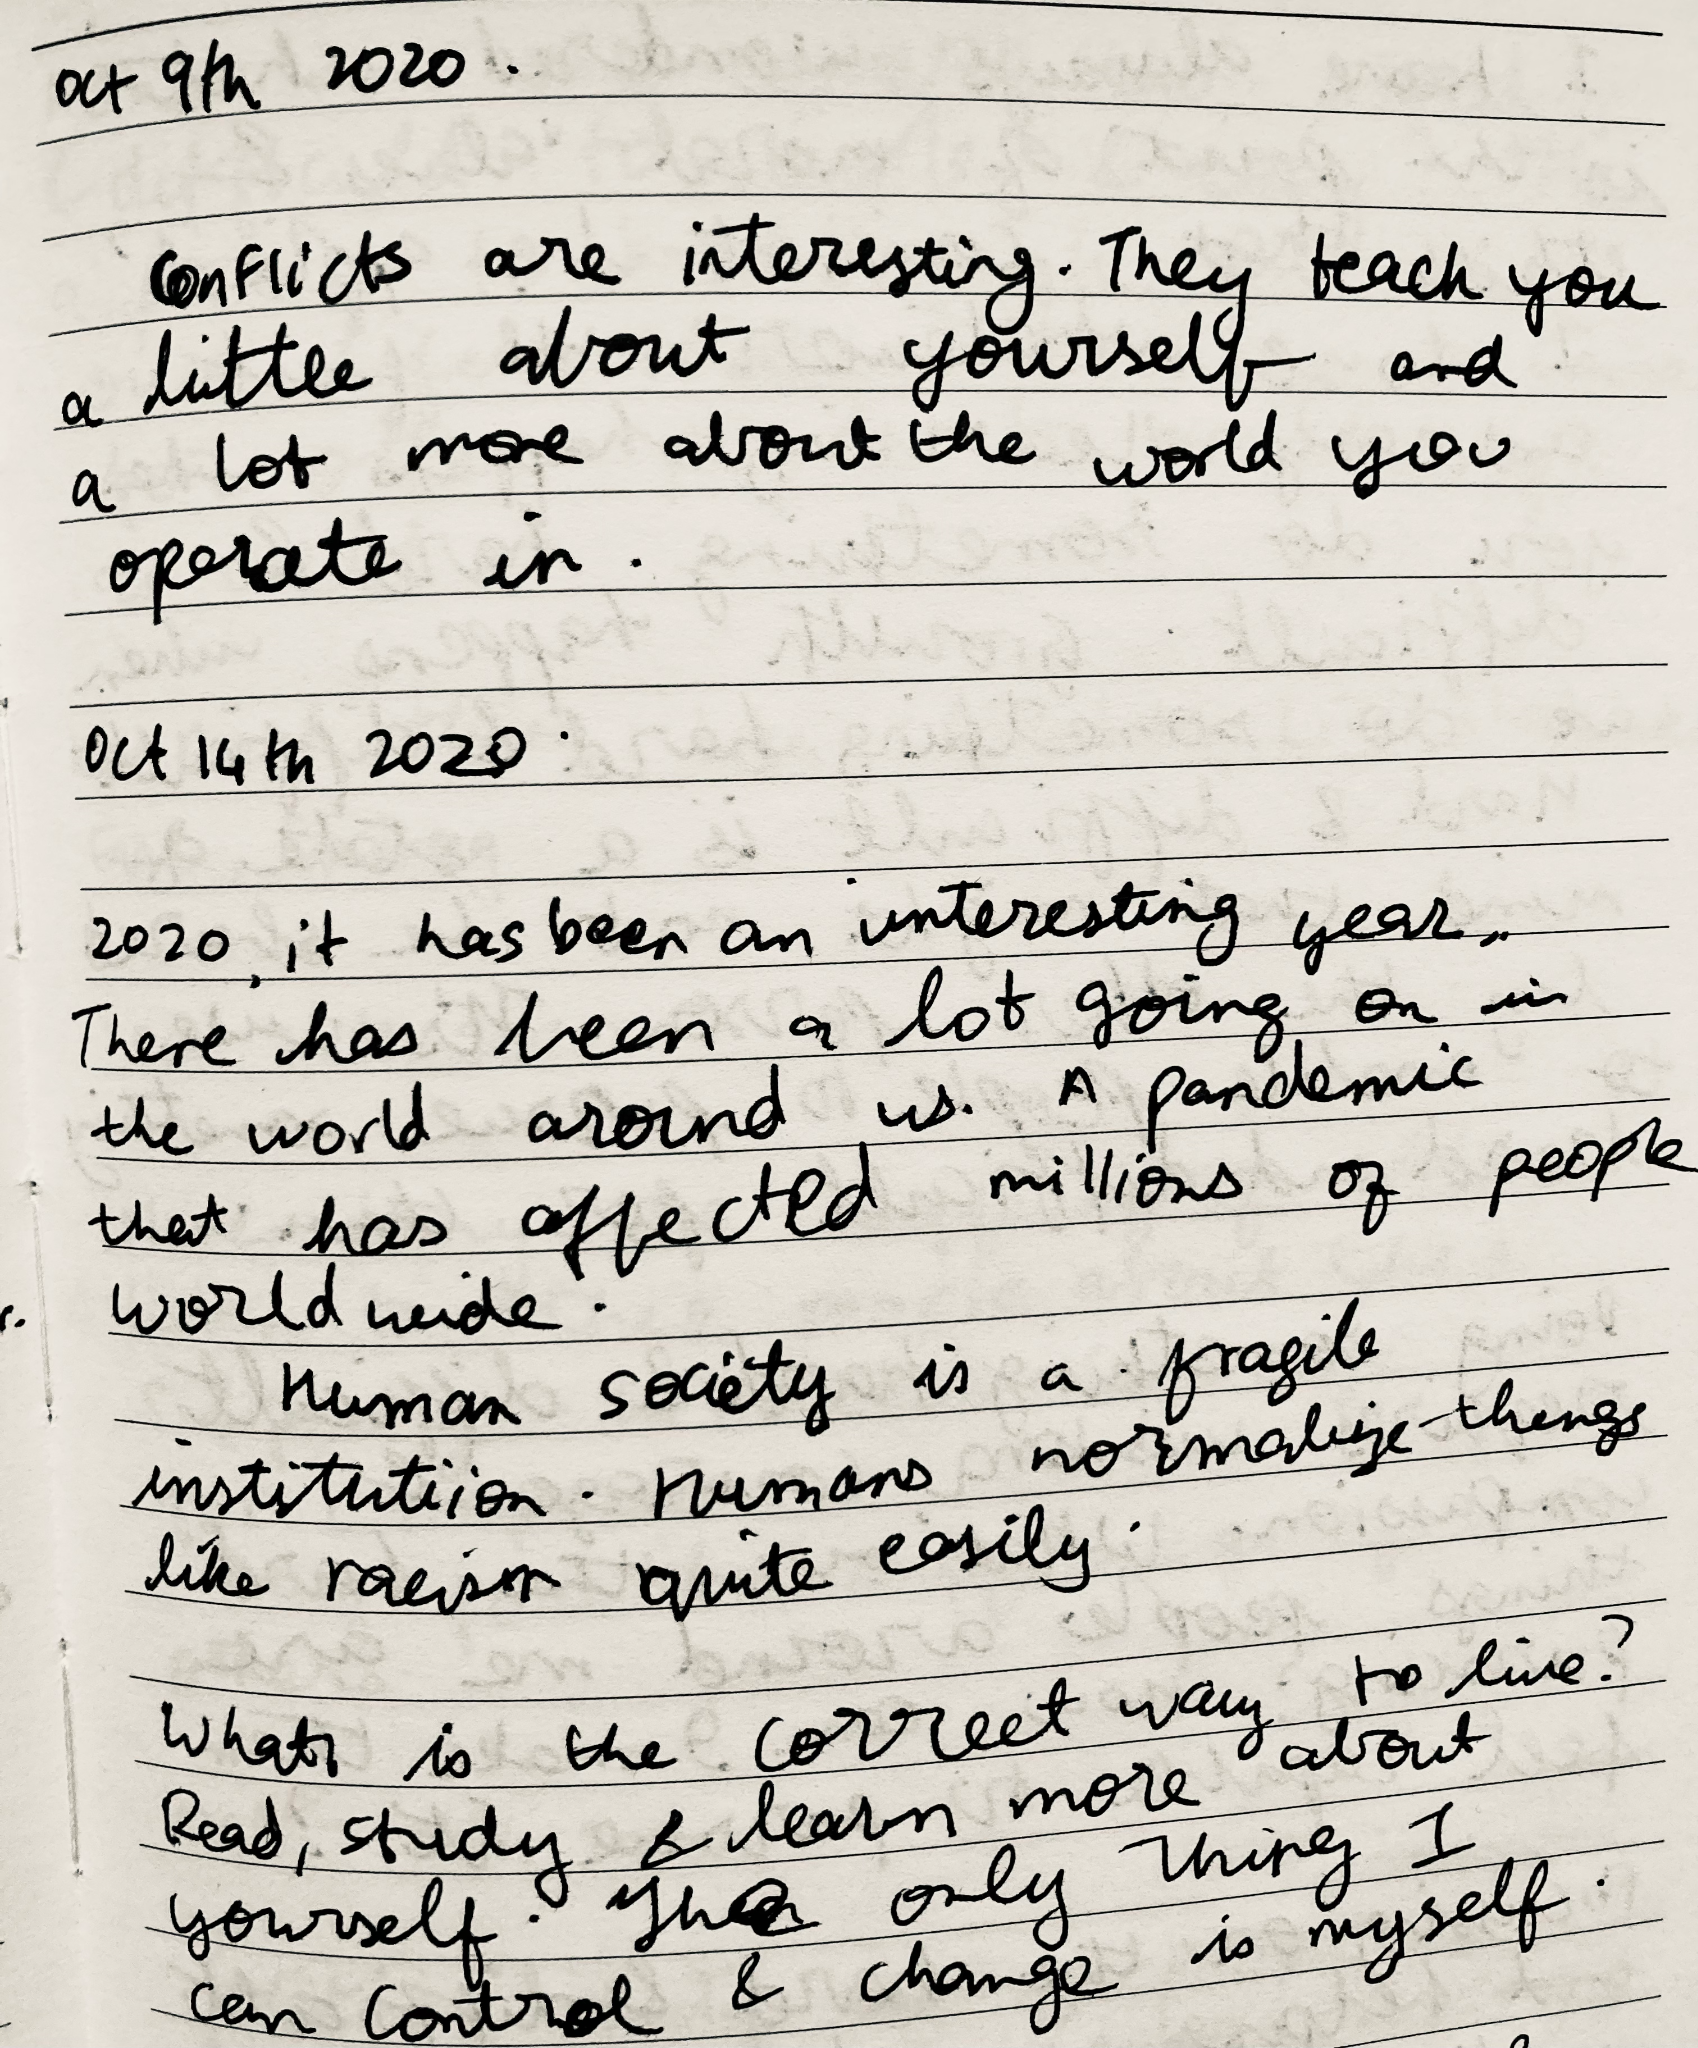 Oct 9th 2020.
Conflicts are interesting. They teach you
a little about yourself and
a lot more about the world you
operate in.
Oct 14th 2020.
2020, it has been an interesting year..
There has been a lot going on in
the world around us. A pandemic
that has affected millions of people
world wide.
Human society is a fragile
institutiion. Humans normalize things
like racism quite easily.
What is the correct way to live?
Read, study & learn more about
yourself. The only thing I
can control & change is myself.